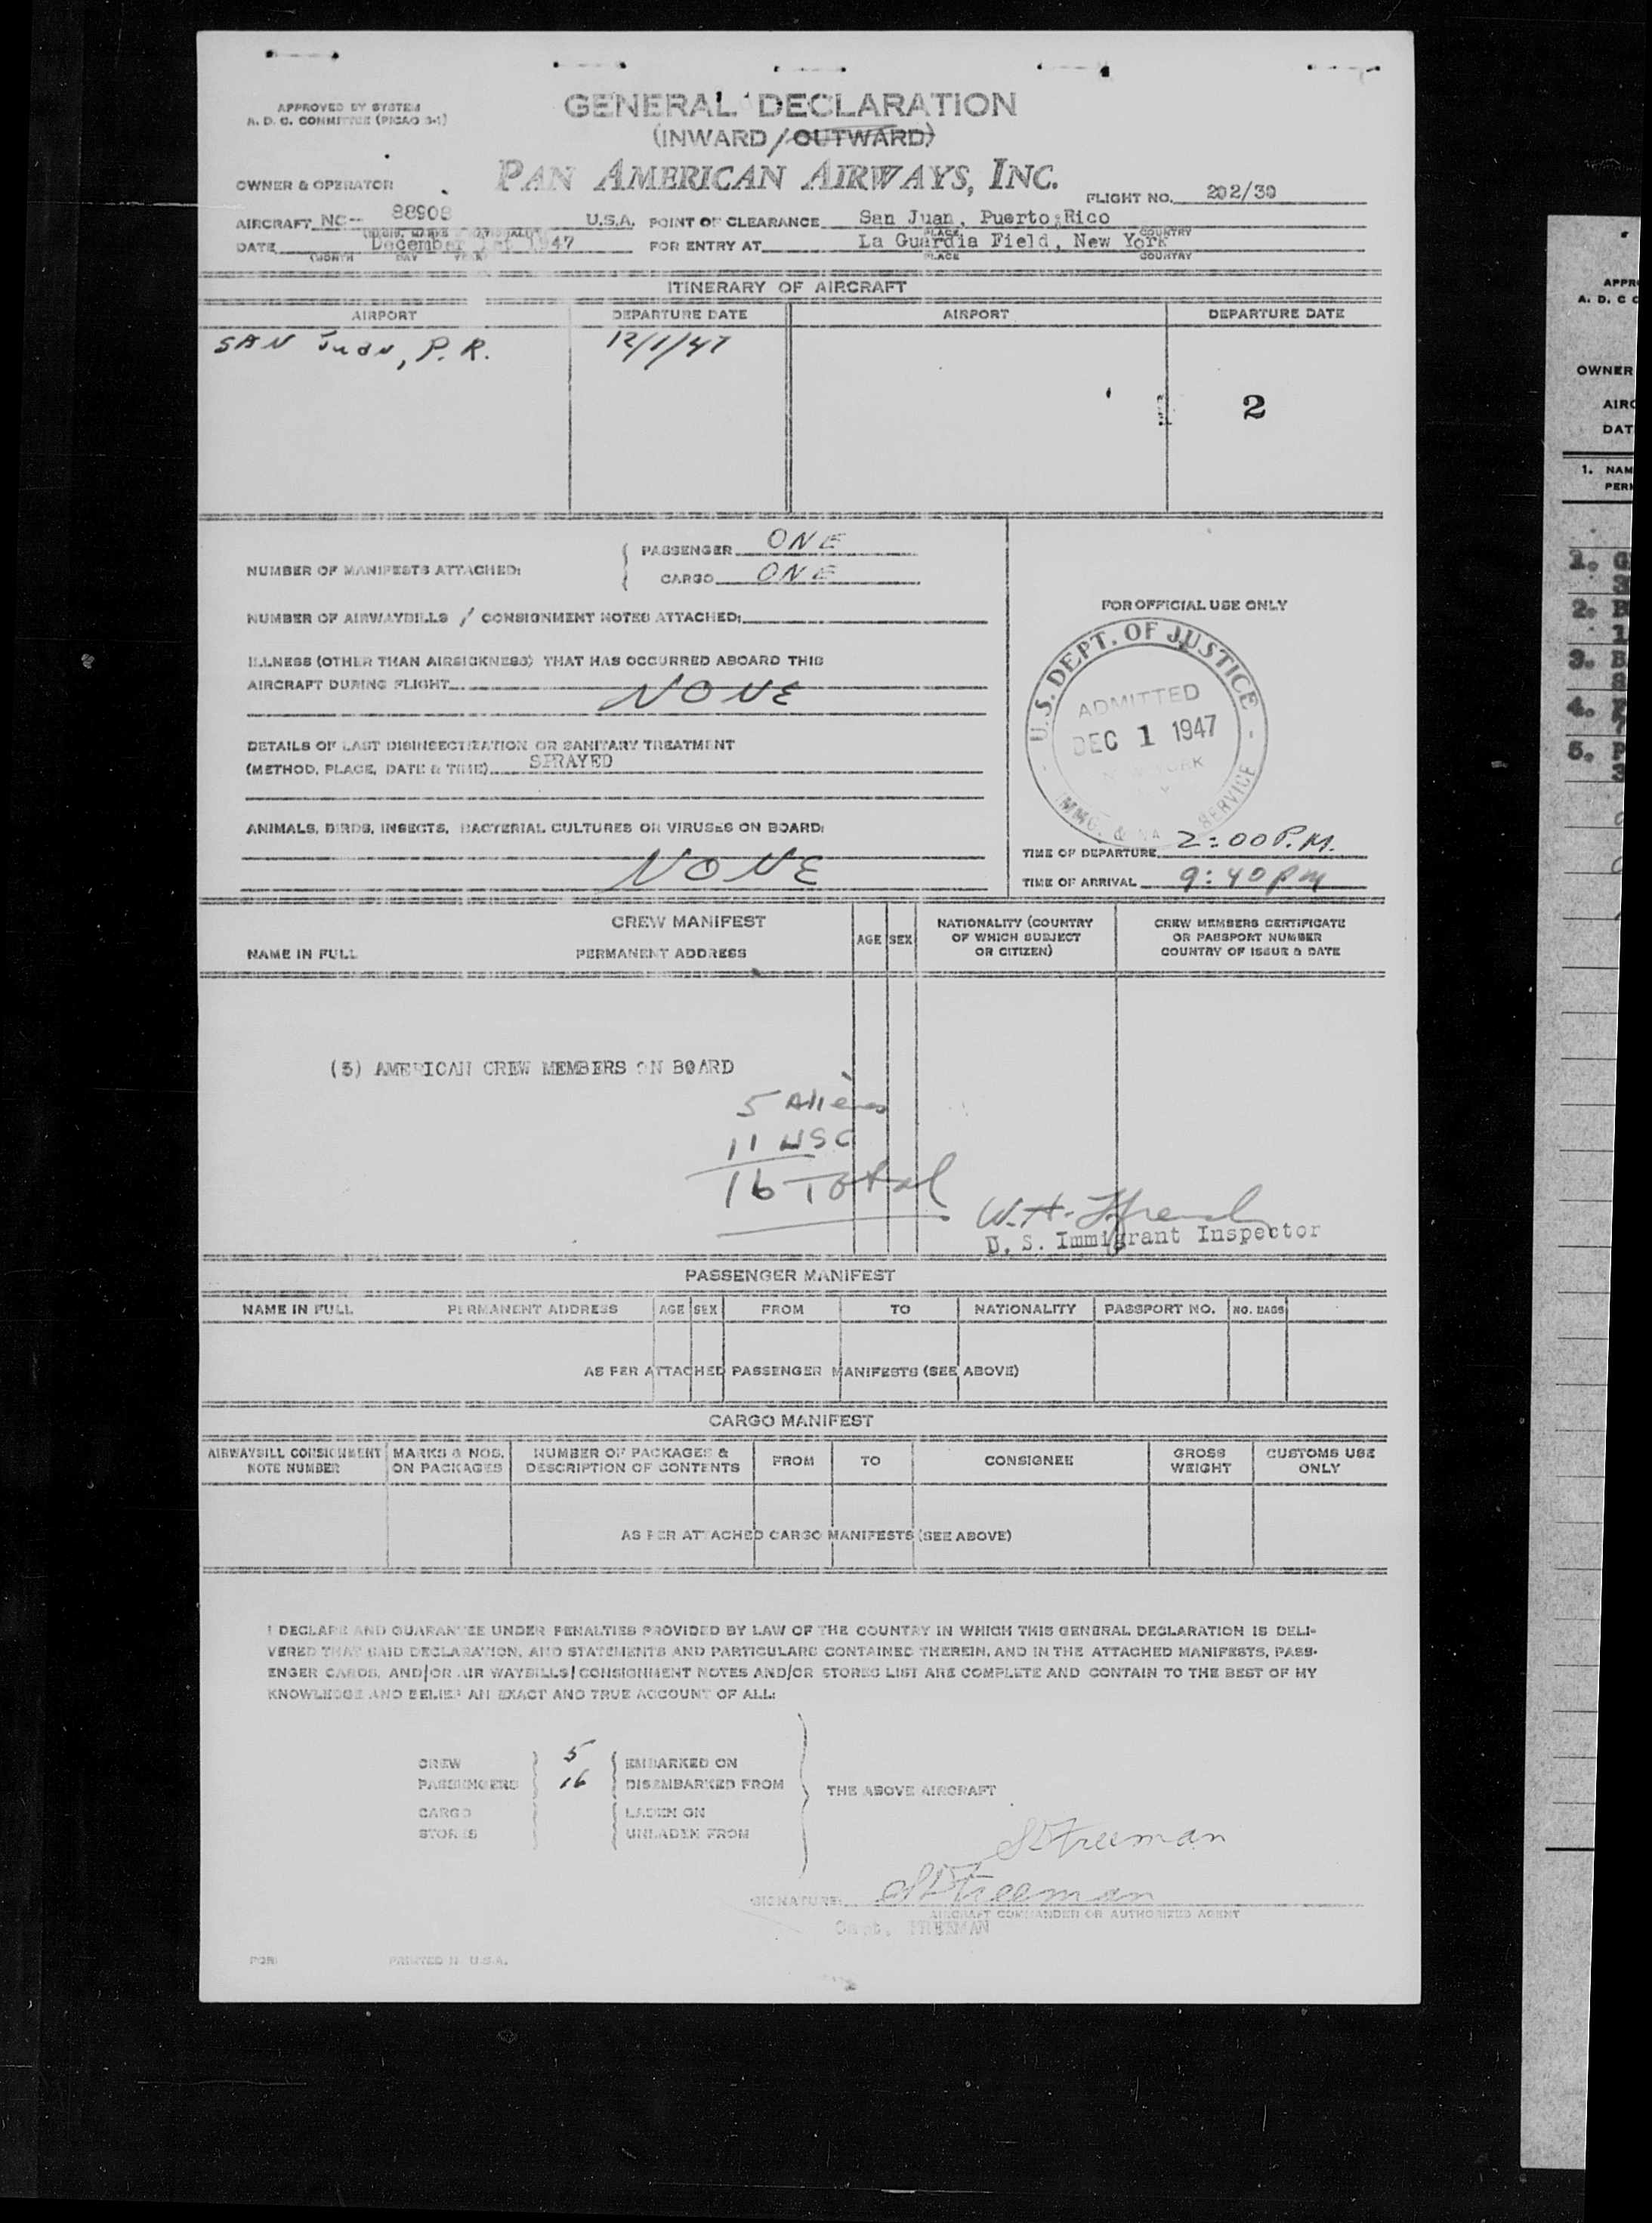 APPROVED BY SYSTEM
A. D. C. COMMITTEE (PICAO 3-1)
GENERAL DECLARATION
(INWARD / OUTWARD)
OWNER & OPERATOR
PAN AMERICAN AIRWAYS, INC.
FLIGHT NO. 202/30
AIRCRAFT NC-- 88908 U.S.A. POINT OF CLEARANCE San Juan, Puerto Rico
PLACE COUNTRY
DATE December 1st 1947 FOR ENTRY AT La Guardia Field, New York
(MONTH DAY YEAR) PLACE COUNTRY
ITINERARY OF AIRCRAFT
AIRPORT DEPARTURE DATE AIRPORT DEPARTURE DATE
SAN Juan, P. R. 12/1/47
2
NUMBER OF MANIFESTS ATTACHED: PASSENGER ONE
CARGO ONE
NUMBER OF AIRWAYBILLS / CONSIGNMENT NOTES ATTACHED:
FOR OFFICIAL USE ONLY
ILLNESS (OTHER THAN AIRSICKNESS) THAT HAS OCCURRED ABOARD THIS
AIRCRAFT DURING FLIGHT NONE
U.S. DEPT. OF JUSTICE
ADMITTED
DEC 1 1947
NEW YORK
IMMG. & NA SERVICE
DETAILS OF LAST DISINSECTIZATION OR SANITARY TREATMENT
(METHOD, PLACE, DATE & TIME) SPRAYED
ANIMALS, BIRDS, INSECTS, BACTERIAL CULTURES OR VIRUSES ON BOARD:
NONE
TIME OF DEPARTURE 2:00 P.M.
TIME OF ARRIVAL 9:40 pm
CREW MANIFEST
NAME IN FULL PERMANENT ADDRESS AGE SEX NATIONALITY (COUNTRY OF WHICH SUBJECT OR CITIZEN) CREW MEMBERS CERTIFICATE OR PASSPORT NUMBER COUNTRY OF ISSUE & DATE
(5) AMERICAN CREW MEMBERS ON BOARD
5 Aliens
11 USC
16 Total
W. H.
U. S. Immigrant Inspector
PASSENGER MANIFEST
NAME IN FULL PERMANENT ADDRESS AGE SEX FROM TO NATIONALITY PASSPORT NO. NO. BAGS
AS PER ATTACHED PASSENGER MANIFESTS (SEE ABOVE)
CARGO MANIFEST
AIRWAYBILL CONSIGNMENT NOTE NUMBER MARKS & NOS. ON PACKAGES NUMBER OF PACKAGES & DESCRIPTION OF CONTENTS FROM TO CONSIGNEE GROSS WEIGHT CUSTOMS USE ONLY
AS PER ATTACHED CARGO MANIFESTS (SEE ABOVE)
I DECLARE AND GUARANTEE UNDER PENALTIES PROVIDED BY LAW OF THE COUNTRY IN WHICH THIS GENERAL DECLARATION IS DELI-
VERED THAT SAID DECLARATION, AND STATEMENTS AND PARTICULARS CONTAINED THEREIN, AND IN THE ATTACHED MANIFESTS, PASS-
ENGER CARDS, AND/OR AIR WAYBILLS/CONSIGNMENT NOTES AND/OR STORES LIST ARE COMPLETE AND CONTAIN TO THE BEST OF MY
KNOWLEDGE AND BELIEF AN EXACT AND TRUE ACCOUNT OF ALL:
CREW 5 EMBARKED ON
PASSENGERS 16 DISEMBARKED FROM THE ABOVE AIRCRAFT
CARGO LADEN ON
STORES UNLADEN FROM
Freeman
SIGNATURE: Freeman
AIRCRAFT COMMANDER OR AUTHORIZED AGENT
Capt. FREEMAN
PRINTED IN U.S.A.
APPR
A. D. C C
OWNER
AIRC
DAT
1. NAM
PER
1. G
2. B
3. B
4.
5. P